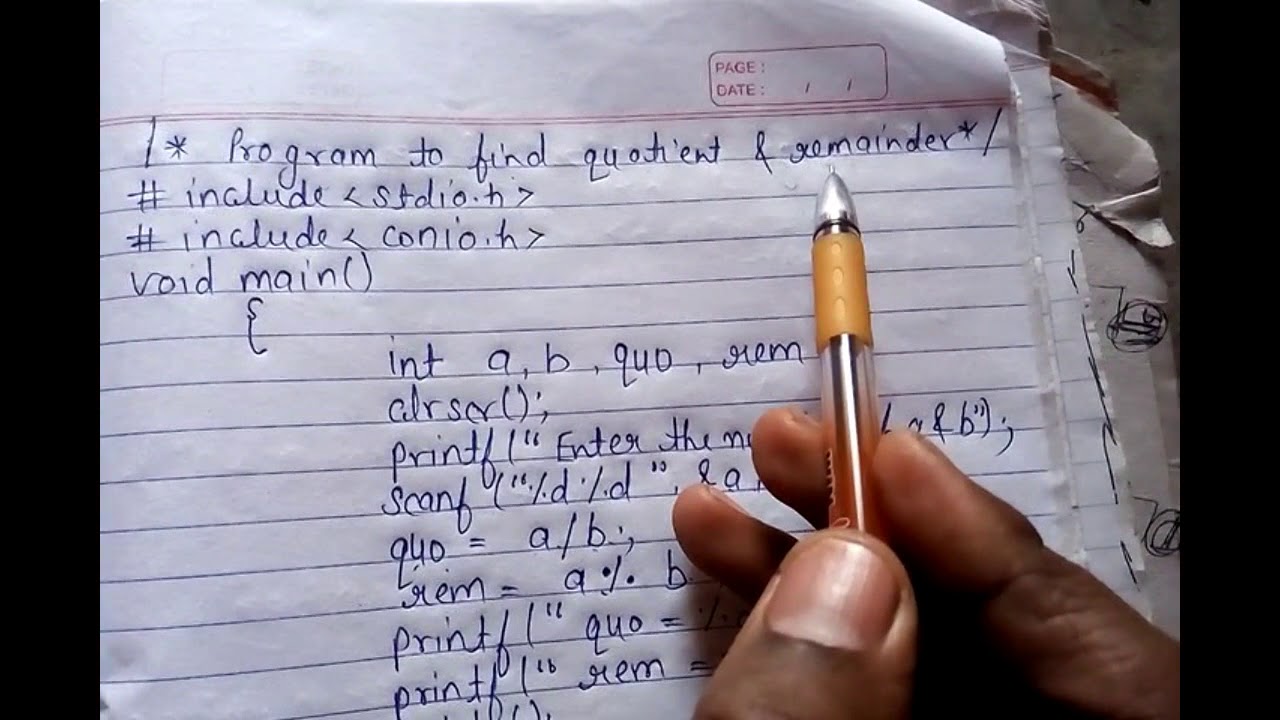 PAGE :
DATE : / /
/* Program to find quotient & remainder*/
# include <stdio.h>
# include < conio.h>
void main()
{
int a, b, quo, rem
clrscr();
printf(" Enter the a & b");
scanf ("%d %d ", &a
quo = a/b;
rem = a % b
printf(" quo = %
printf(" rem =